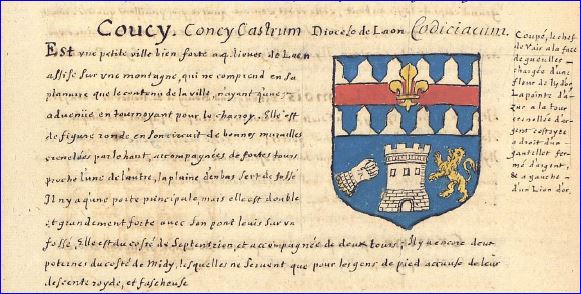 Coucy. Concy Castrum Diocese de Laon Codiciacum.
Est vne petite ville bien forte a 4 lieues de Laon
assise sur vne montagne, qui ne comprend en sa
planure que le contenu de la ville, n'ayant qu'une
advenüe en tournoyant pour le charroy. Elle est
de figure ronde en son circuit de bonnes murailles
crenelées par le haut, accompagnées de fortes tours
proche l'une de l'autre, la plaine d'en bas sert de fossé
Il n'y a qu'une porte principale, mais elle est double
et grandement forte avec son pont levis sur vn
fossé. Elle est du costé de Septentrion, et accompagnée de deux tours; Il y a encore deux
poternes du costé de Midy, lesquelles ne servent que pour les gens de pied a cause de leur
descente royde, et fascheuse
Coupé, le chef
de Vair a la face
de gueulles
chargée d'une
fleur de lys d'or
La pointe d'a-
zur a la tour
crenellée d'ar-
gent costoyée
a droit d'un
gantellet fer-
mé d'argent,
& a gauche
d'un Lion d'or.